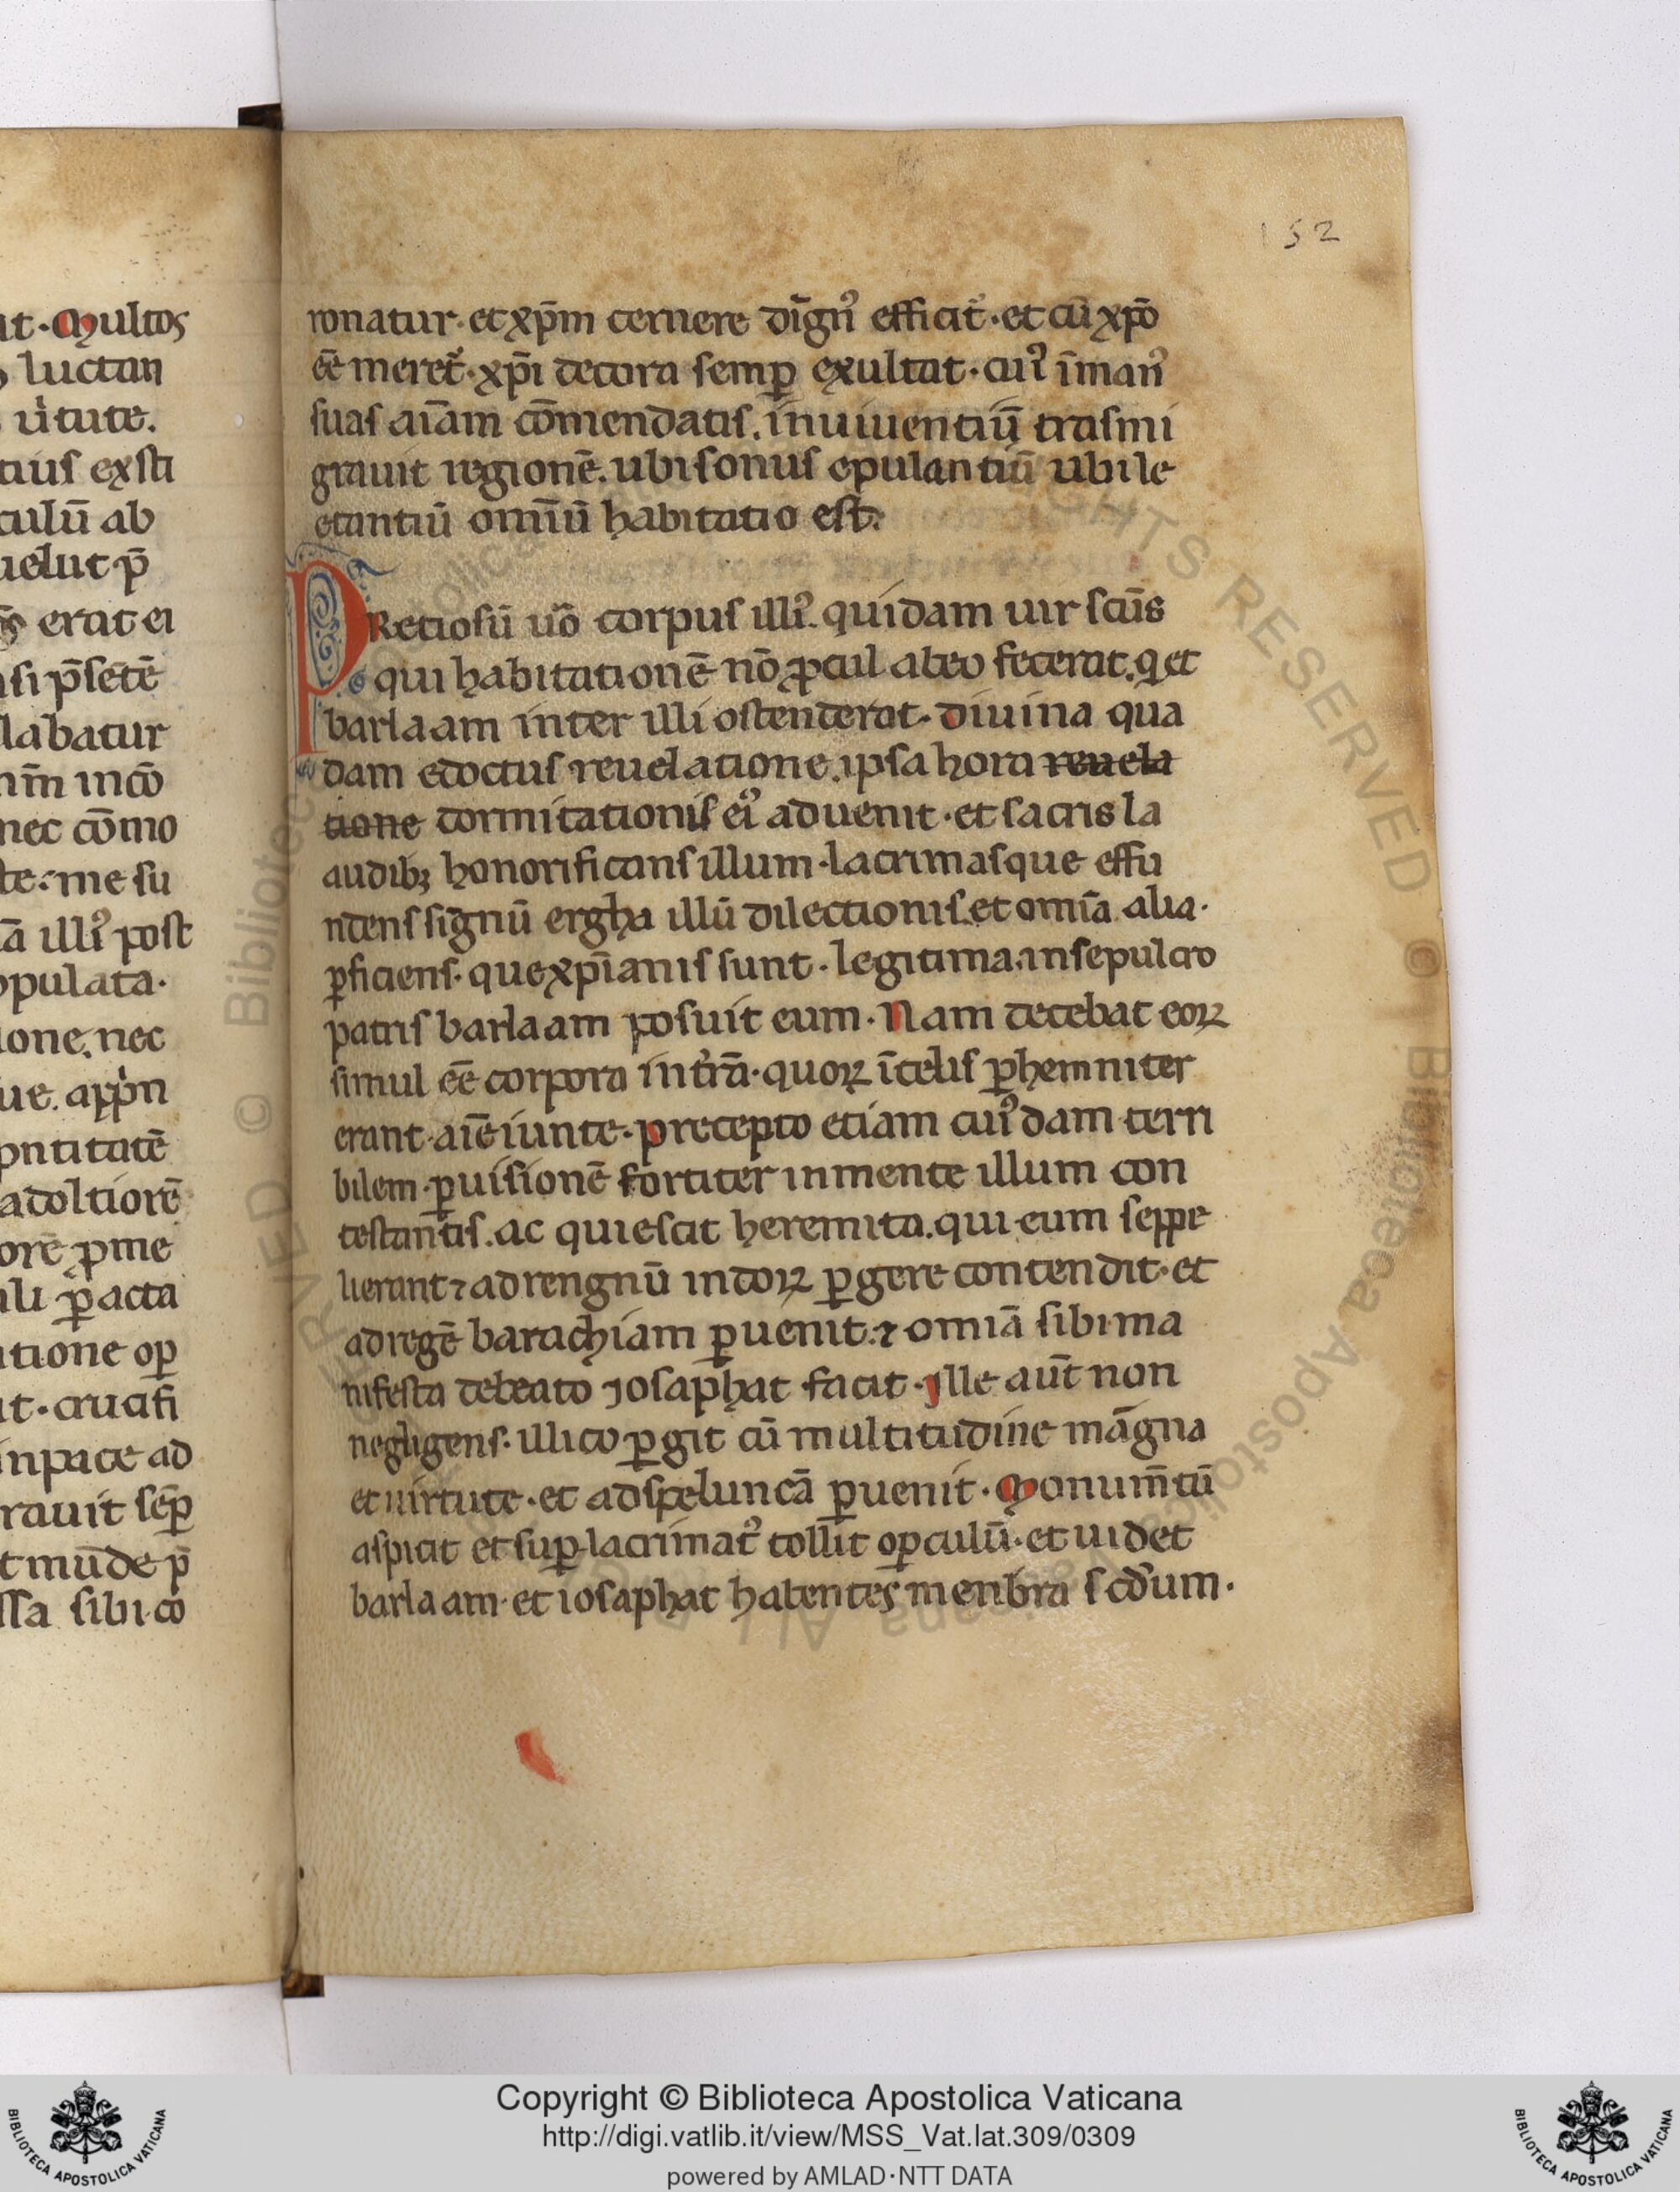 152
ut. Multos
luctan
u̇tute.
tius exsti
culū ab
uelut p̄
erat ei
si p̄sētē
labatur
nm̄ incō
nec cōmo
te: me su
tā illi᾽ post
opulata.
ione. nec
ue. app̄n
pntitatē
adoltiorē
orē ꝓme
ili ꝑacta
itione oꝑ
ut. crucifi
inpace ad
rauit sēꝑ
t mūde p̄
ssa sibi cō
ronatur. et xp̄m cernere dīgn᾽ efficit᾽. et cū xp̄o
ēē meret᾽. xp̄i decora semꝑ exultat. cui᾽ īman᾽
suas aīam cōmendatis. inuiuentiū trasmi
grauit regionē. ubi sonus epulantiū ubi le
etantiū omīū habitatio est.
PRetiosū uō corpus illi᾽. quidam uir scūs
qui habitationē nō ꝓcul abeo fecerat. q et
barlaam inter illi ostenderat. diuina qua
dam edoctus reuelatione. ipsa hora reuela
tione dormitationis ei᾽ aduenit. et sacris la
audibꝫ honorificans illum. lacrimasque effu
ndens sīgnū ergha illū dilectionis. et omīa alia.
ꝑficiens. que xp̄ianis sunt. legitima. insepulcro
patris barlaam posuit eum. Nam decebat eoꝝ
simul ēē corpora int᾽rā. quoꝝ īcelis ꝑhemniter
erant aīē iunte. precepto etiam cui᾽dam terri
bilem ꝑuisionē fortiter inmente illum con
testantis. ac quiescit heremita. qui eum seppe
lierant ⁊ adrengnū indoꝝ ꝑgere contendit. et
adregē barachiam ꝑuenit. ⁊ omiā sibi ma
nifesta debeato iosaphat facit. Ille aūt non
negligens. illico ꝑgit cū multitudine māgna
et uirtute. et adspeluncā ꝑuenit. Monum̄tū
aspicit et suꝑ lacrimat᾽ tollit oꝑculū. et uidet
barlaam. et iosaphat habentes menbra scd̄um.
Copyright © Biblioteca Apostolica Vaticana
http://digi.vatlib.it/view/MSS_Vat.lat.309/0309
powered by AMLAD·NTT DATA
BIBLIOTECA APOSTOLICA VATICANA
BIBLIOTECA APOSTOLICA VATICANA